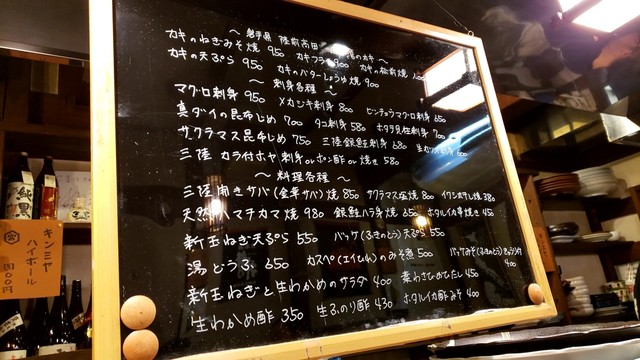 〜 岩手県 陸前高田 のカキ 〜
カキのねぎみそ焼 950 カキフライ 900 カキの松前焼
カキの天ぷら 950 カキのバターしょうゆ焼 900
〜 刺身各種 〜
マグロ刺身 950 メカジキ刺身 800 ビンチョウマグロ刺身 650
真ダイの昆布じめ 700 タコ刺身 580 ホタテ貝柱刺身 700
サクラマス昆布じめ 750 三陸銀鮭刺身 680 刺身 600
三陸 カラ付ホヤ 刺身orポン酢or焼き 580
〜 料理各種 〜
三陸 開きサバ(金華サバ)焼 850 サクラマス塩焼 800 イワシ 焼 380
天然ハマチカマ焼 980 銀鮭ハラ身焼 650 ホタルイカ串焼き 450
新玉ねぎ天ぷら 550 バッケ(ふきのとう)天ぷら 550
湯どうふ 650 カスペ(エイひれ)のみそ煮 500 バッケみそ(ふきのとう)きゅうり付 400
新玉ねぎと生わかめのサラダ 400 葉わさびおひたし 450
生わかめ酢 350 生ふのり酢 430 ホタルイカ酢みそ 400
キンミヤ
ハイボール
純黒